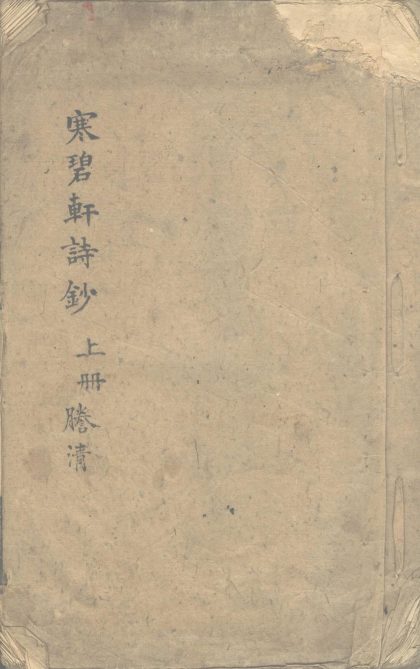 寒碧軒詩鈔
上冊謄清